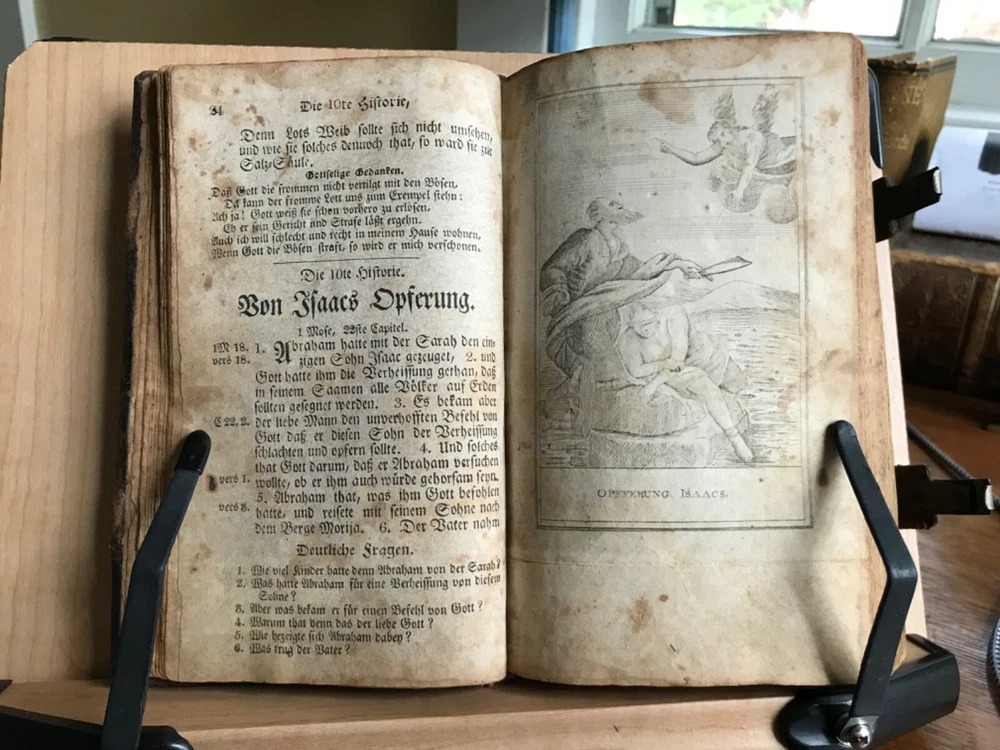 24 Die 10te Historie,
Denn Lots Weib sollte sich nicht umsehen,
und wie sie solches dennoch that, so ward sie zur
Salz-Säule.
Gottselige Gedanken.
Daß Gott die frommen nicht vertilgt mit den Bösen,
Da kann der fromme Lott uns zum Exempel stehn:
Ach ja! Gott weiß sie schon vorhero zu erlösen,
Eh er sein Gericht und Strafe läßt ergehn.
Auch ich will schlecht und recht in meinem Hause wohnen,
Wenn Gott die Bösen straft, so wird er mich verschonen.
Die 10te Historie.
Von Isaacs Opferung.
1 Mose, 22ste Capitel.
1M 18. 1. Abraham hatte mit der Sarah den ein-
vers 18. zigen Sohn Isaac gezeuget, 2. und
Gott hatte ihm die Verheissung gethan, daß
in seinem Saamen alle Völker auf Erden
sollten gesegnet werden. 3. Es bekam aber
C 22. 2. der liebe Mann den unverhofften Befehl von
Gott daß er diesen Sohn der Verheissung
schlachten und opfern sollte. 4. Und solches
that Gott darum, daß er Abraham versuchen
vers 1. wollte, ob er ihm auch würde gehorsam seyn.
5. Abraham that, was ihm Gott befohlen
vers 3. hatte, und reisete mit seinem Sohne nach
dem Berge Morija. 6. Der Vater nahm
Deutliche Fragen.
1. Wie viel Kinder hatte denn Abraham von der Sarah?
2. Was hatte Abraham für eine Verheissung von diesem
Sohne?
3. Aber was bekam er für einen Befehl von Gott?
4. Warum that denn das der liebe Gott?
5. Wie bezeigte sich Abraham dabey?
6. Was trug der Vater?
OPFFERUNG ISAACS.